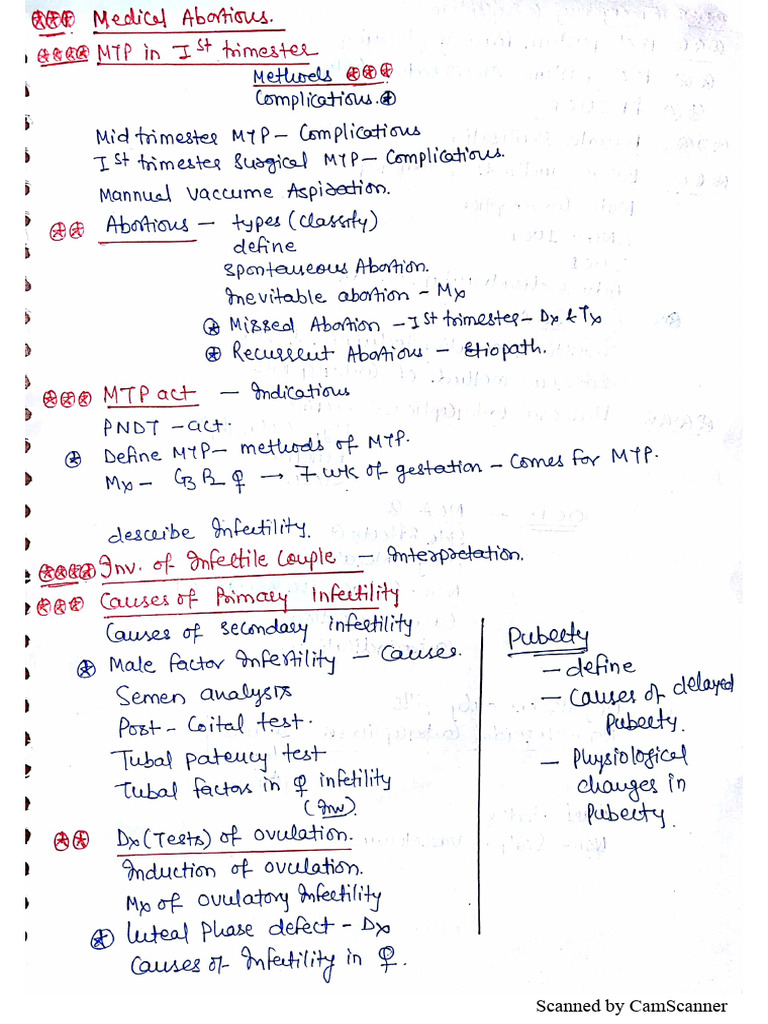 Medical Abortions.
MTP in Ist trimester
Methods
Complications.
Mid trimester MTP – Complications
Ist trimester Surgical MTP – Complications.
Mannual Vaccume Aspiration.
Abortions – types (classify)
define
spontaneous Abortion.
Inevitable abortion – Mx
Missed Abortion – Ist trimester – Dx & Tx
Recurrent Abortions – Etiopath.
MTP act – Indications
PNDT – act.
Define MTP – methods of MTP.
Mx – G3 P2 ♀ → 7 wk of gestation – Comes for MTP.
describe Infertility.
Inv. of Infertile Couple – Interpretation.
Causes of Primary Infertility
Causes of secondary infertility
Male factor Infertility – Causes.
Semen analysis
Post – Coital test.
Tubal patency test
Tubal factors in ♀ infetility
(Inv)
Dx (Tests) of ovulation.
Induction of ovulation.
Mx of ovulatory Infertility
luteal Phase defect – Dx
Causes of Infertility in ♀.
Puberty
– define
– Causes of delayed
Puberty.
– Physiological
changes in
Puberty.
Scanned by CamScanner